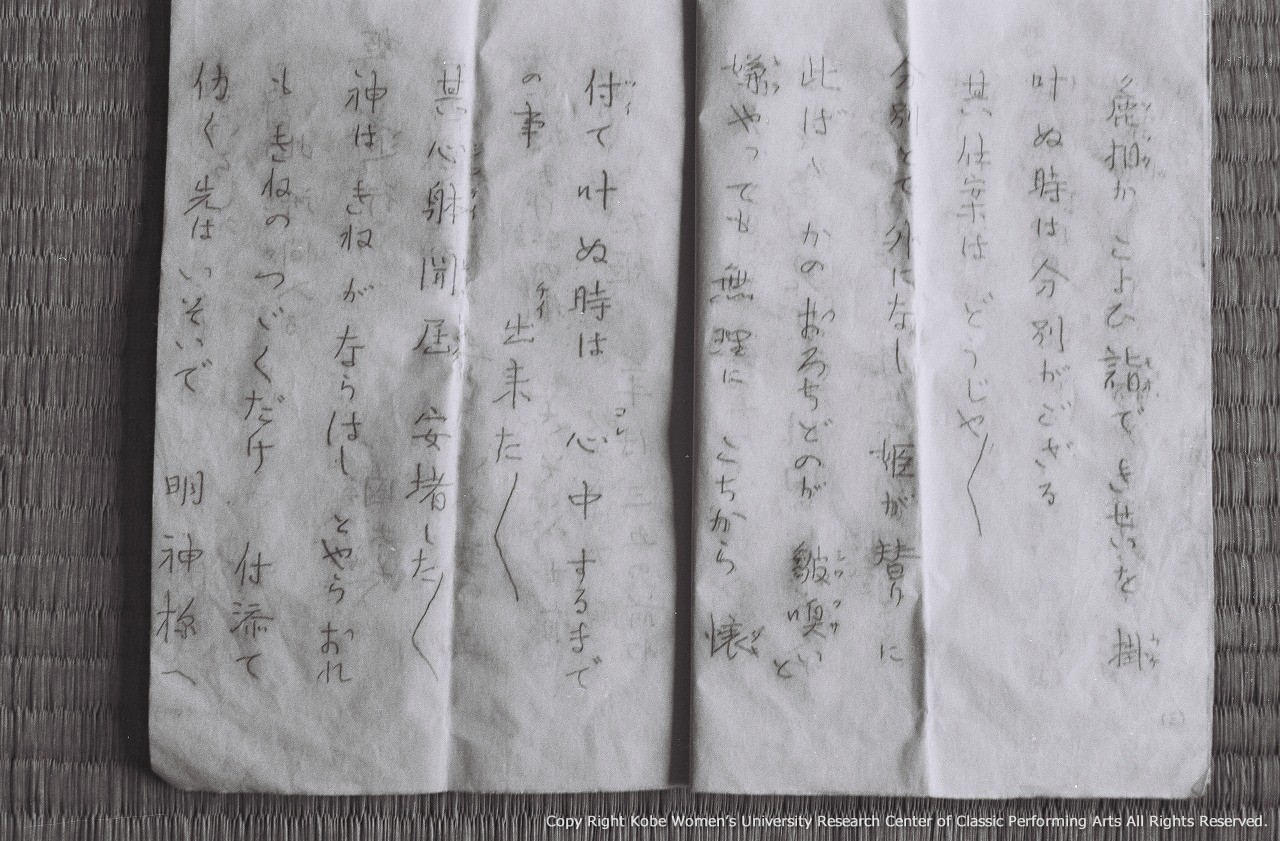 鹿拍か こよひ 詣で きせいを 掛
叶ぬ時は分別がござる
其仕案は どうじや〱
分別とて外になし 姫が替りに
此ば かのおろちどのが 皺嗅いと
嫌やっても 無理に こちから 懐
付て叶ぬ時は 心中するまで
の事 出来た〱
其心躰聞届 安堵した〱
神はきねがならはし とやらおれ
もきねのつづくだけ 付添て
働く先はいそいで 明神様へ
(三)
Copy Right Kobe Women's University Research Center of Classic Performing Arts All Rights Reserved.